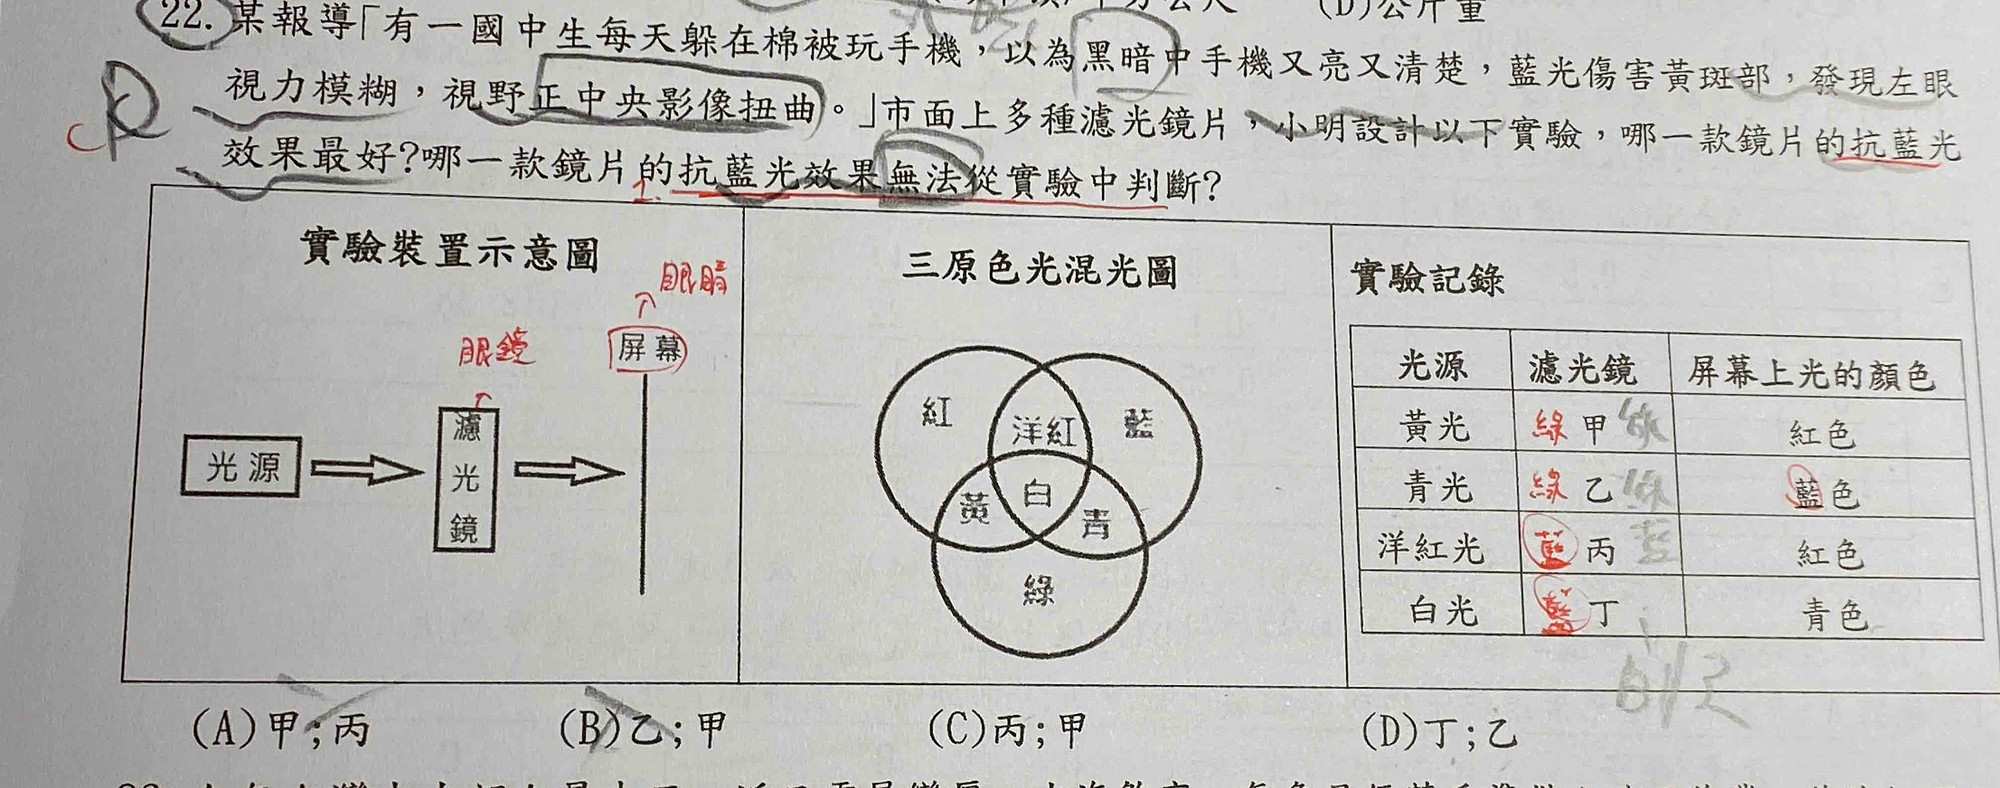 (D)公斤重
22.某報導「有一國中生每天躲在棉被玩手機，以為黑暗中手機又亮又清楚，藍光傷害黃斑部，發現左眼
視力模糊，視野正中央影像扭曲。」市面上多種濾光鏡片，小明設計以下實驗，哪一款鏡片的抗藍光
效果最好?哪一款鏡片的抗藍光效果無法從實驗中判斷?
C
1.
實驗裝置示意圖
眼睛
眼鏡
屏幕
光源
濾光鏡
三原色光混光圖
紅
洋紅
藍
黃
白
青
綠
實驗記錄
光源 濾光鏡 屏幕上光的顏色
黃光 綠 甲 綠 紅色
青光 綠 乙 綠 藍色
洋紅光 藍 丙 藍 紅色
白光 丁 青色
(A)甲;丙 (B)乙;甲 (C)丙;甲 (D)丁;乙